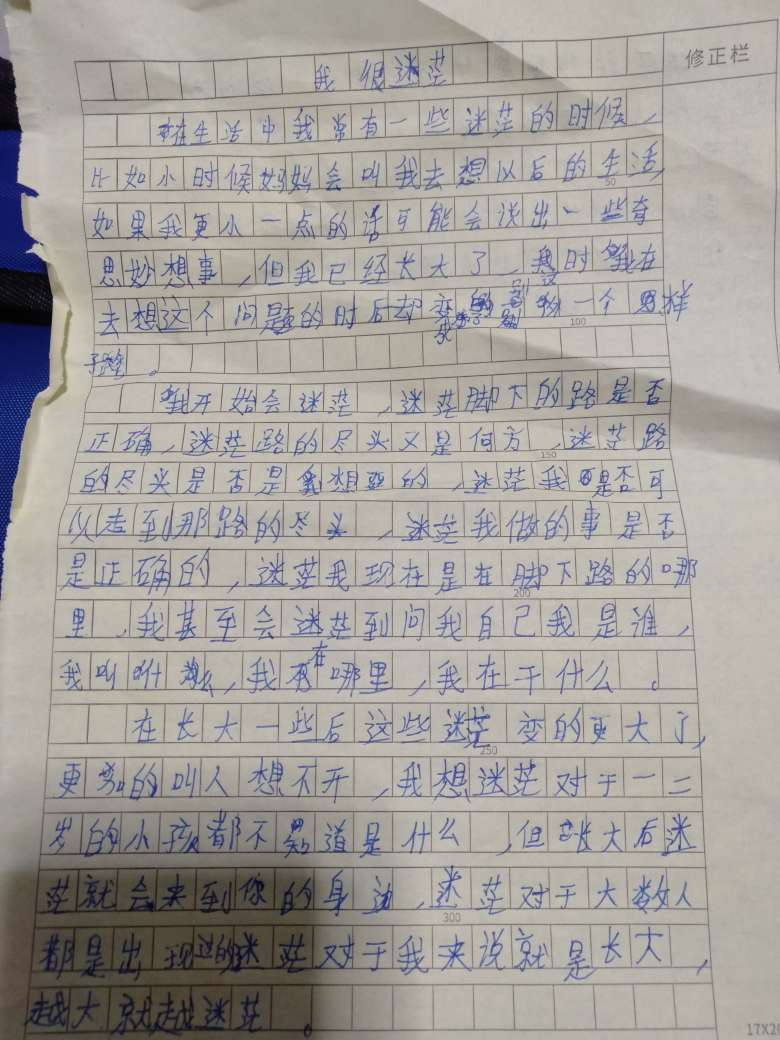 修正栏
我很迷茫
在生活中我常有一些迷茫的时候，
比如小时候妈妈会叫我去想以后的生活，
如果我更小一点的话可能会说出一些奇
思妙想事，但我已经长大了，时我在
去想这个问题的时后却变一个样
子。
我开始会迷茫，迷茫脚下的路是否
正确，迷茫路的尽头又是何方，迷茫路
的尽头是否是我想要的，迷茫我是否可
以走到那路的尽头，迷茫我做的事是否
是正确的，迷茫我现在是在脚下路的哪
里，我甚至会迷茫到问我自己我是谁，
我叫什么，我在哪里，我在干什么。
在长大一些后这些迷茫变的更大了，
更加的叫人想不开，我想迷茫对于一二
岁的小孩都不知道是什么，但长大后迷
茫就会来到你的身边，迷茫对于大数人
都是出现过的迷茫对于我来说就是长大，
越大就越迷茫。
50
100
150
200
250
300
17X20